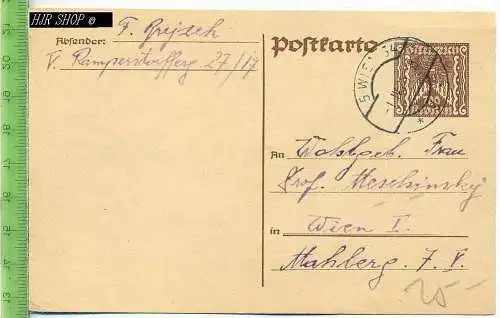 HJR SHOP
Absender: F.
V. Ramperstorfferg. 27/17
Postkarte
5 WIEN
An Wohlgeb. Frau
Prof. Meschinsky
in Wien I.
Mahlerg. 7. V.
25-